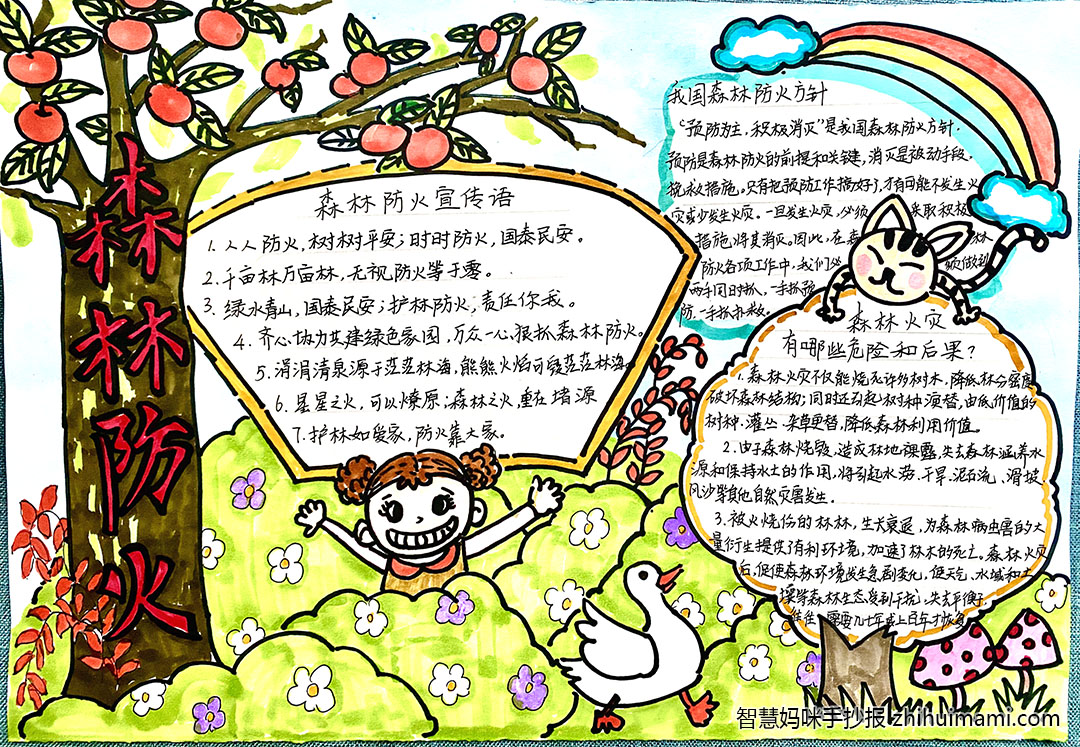 森林防火
森林防火宣传语
1.人人防火,树树平安;时时防火,国泰民安。
2.千亩林万亩林,无视防火等于零。
3.绿水青山,国泰民安;护林防火,责任你我。
4.齐心协力共建绿色家园,万众一心狠抓森林防火。
5.涓涓清泉源于茫茫林海,熊熊火焰可毁茫茫林海。
6.星星之火,可以燎原;森林之火,重在堵源
7.护林如爱家,防火靠大家。
我国森林防火方针
“预防为主,积极消灭”是我国森林防火方针.
预防是森林防火的前提和关键,消灭是被动手段,
挽救措施。只有把预防工作搞好了,才有可能不发生火
灾或少发生火灾。一旦发生火灾,必须采取积极
措施,将其消灭。因此,在森林
防火各项工作中,我们必须做到
两手同时抓,一手抓预
防,一手抓扑救。
森林火灾
有哪些危险和后果?
1.森林火灾不仅能烧死许多树木,降低林分密度
破坏森林结构;同时还引起树种演替,由低价值的
树种、灌丛、杂草更替,降低森林利用价值。
2.由于森林烧毁,造成林地裸露,失去森林涵养水
源和保持水土的作用,将引起水涝、干旱、泥石流、滑坡
风沙等其他自然灾害发生.
3.被火烧伤的林林,生长衰退,为森林病虫害的大
量衍生提供了有利环境,加速了林木的死亡。森林火灾
后,促使森林环境发生急剧变化,使天气、水域和土
壤等森林生态受到干扰,失去平衡,
往往需要几十年或上百年才恢复
智慧妈咪手抄报 zhihuimami.com